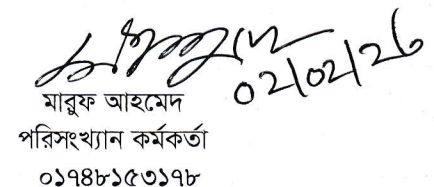 ০২/০২/২৬
মারুফ আহমেদ
পরিসংখ্যান কর্মকর্তা
০১৭৪৮১৫৩১৭৮